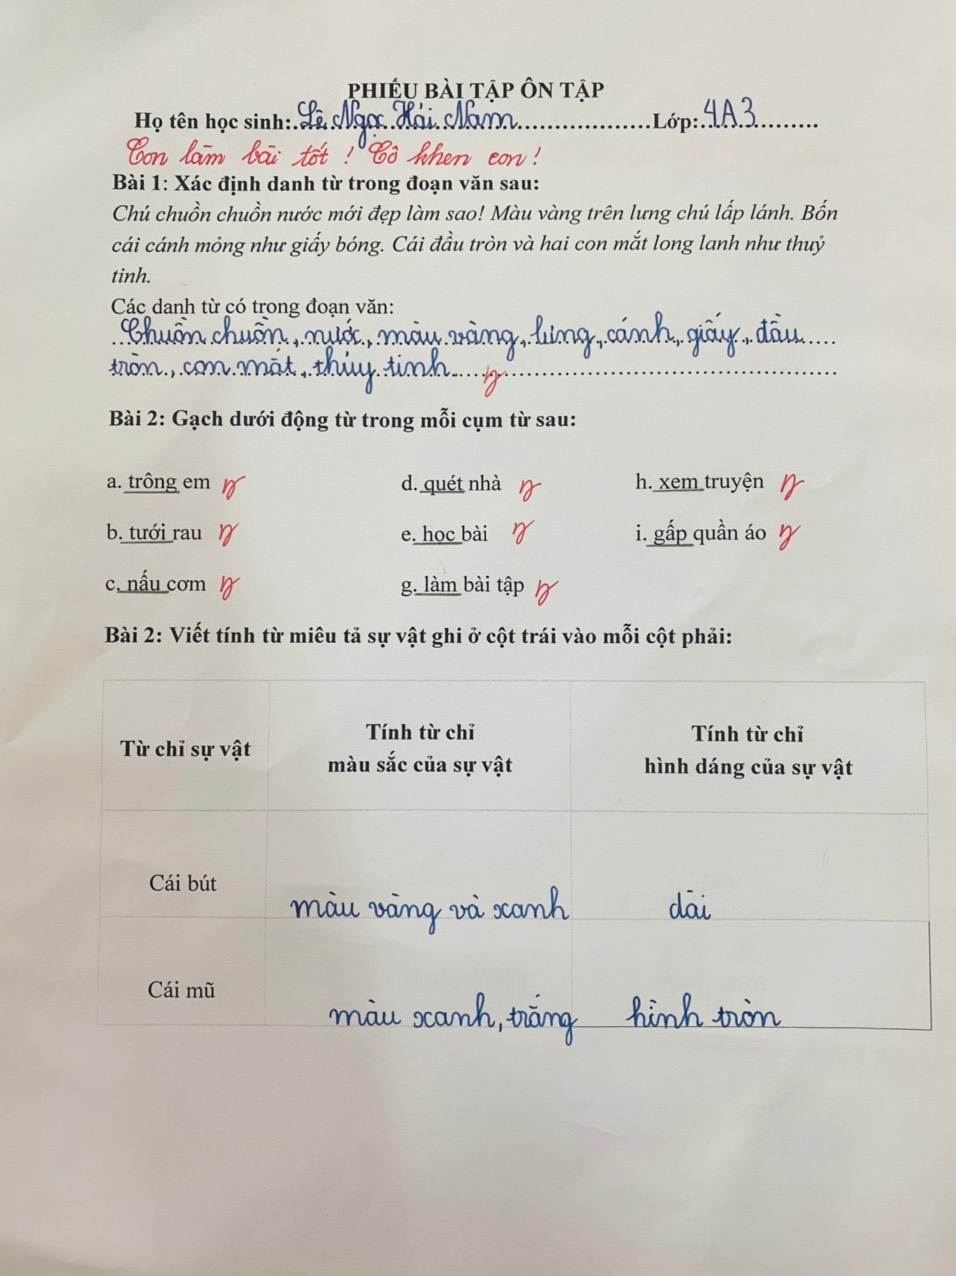 PHIẾU BÀI TẬP ÔN TẬP
Họ tên học sinh:..Lê Ngọc Hải Nam....................Lớp:..4A3..........
Con làm bài tốt ! Cô khen con !
Bài 1: Xác định danh từ trong đoạn văn sau:
Chú chuồn chuồn nước mới đẹp làm sao! Màu vàng trên lưng chú lấp lánh. Bốn
cái cánh mỏng như giấy bóng. Cái đầu tròn và hai con mắt long lanh như thuỷ
tinh.
Các danh từ có trong đoạn văn:
Chuồn chuồn, nước, màu vàng, lưng, cánh, giấy, đầu
tròn, con mắt, thủy tinh
Bài 2: Gạch dưới động từ trong mỗi cụm từ sau:
a. trông em d. quét nhà h. xem truyện
b. tưới rau e. học bài i. gấp quần áo
c. nấu cơm g. làm bài tập
Bài 2: Viết tính từ miêu tả sự vật ghi ở cột trái vào mỗi cột phải:
Từ chỉ sự vật
Tính từ chỉ
màu sắc của sự vật
Tính từ chỉ
hình dáng của sự vật
Cái bút
màu vàng và xanh
dài
Cái mũ
màu xanh, trắng
hình tròn